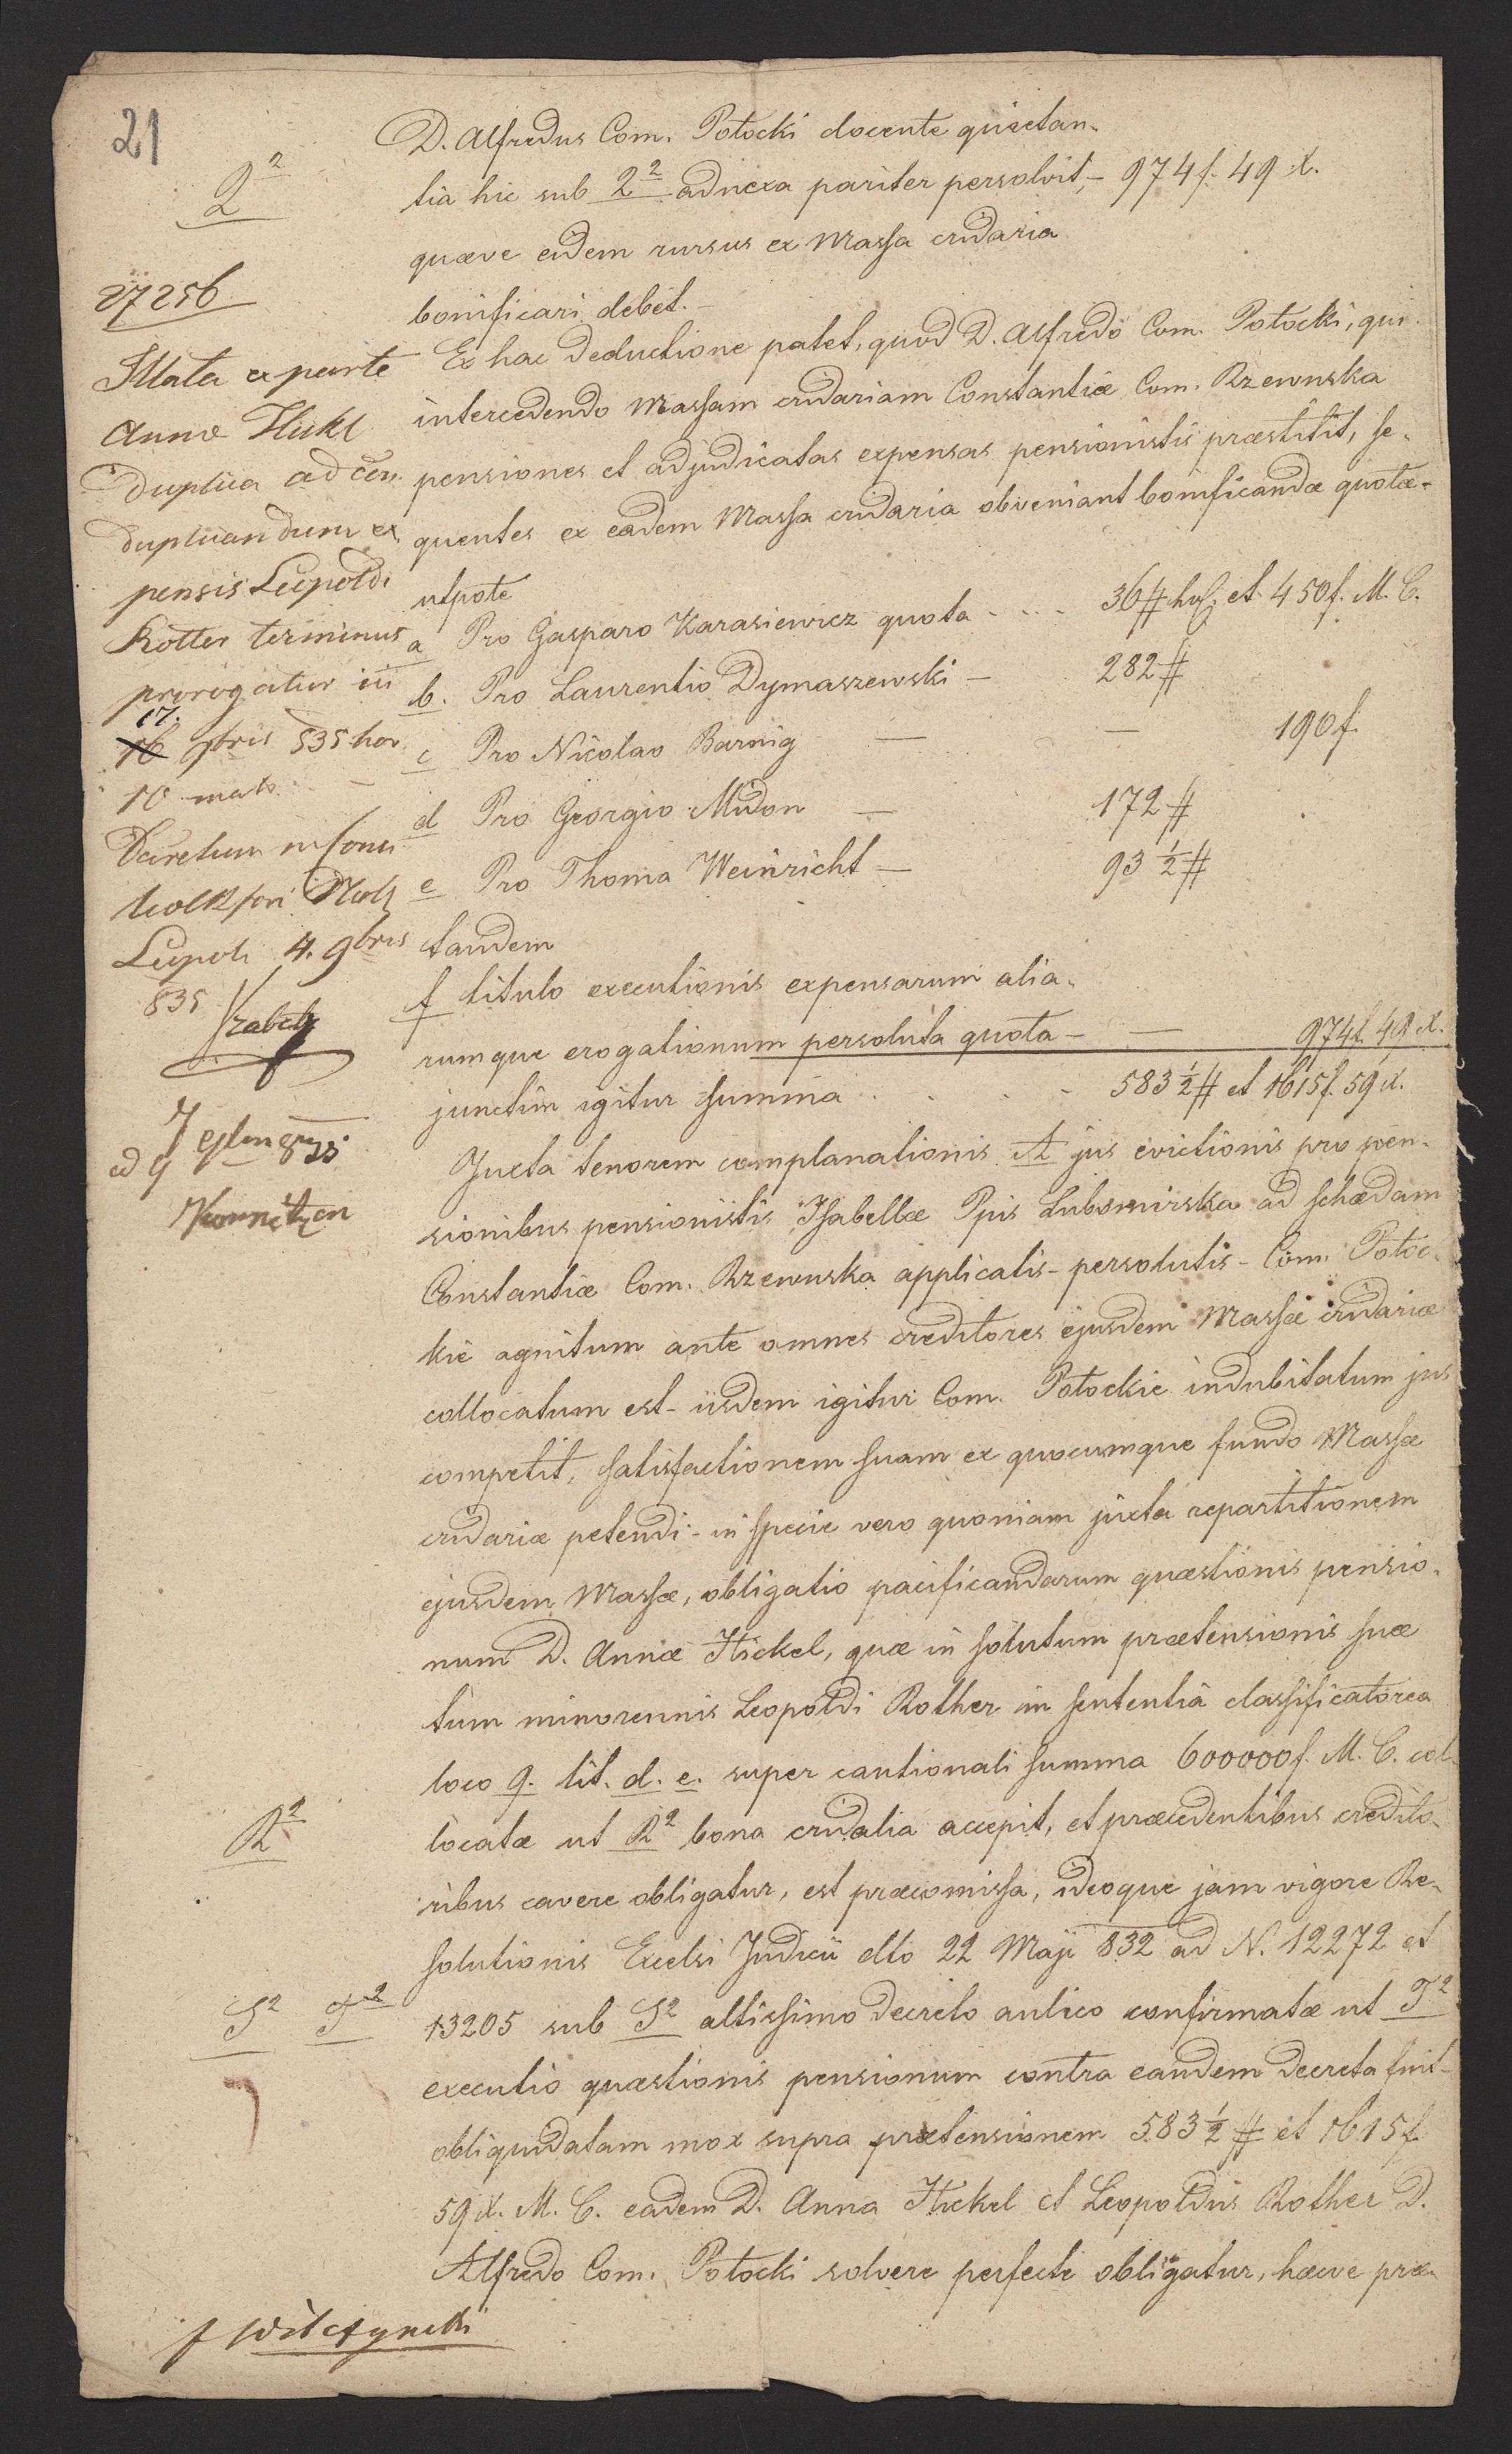 21
Q²
D. Alfredus Com. Potocki docente quietan-
tia hic sub Q² adnexa pariter persolvit, – 974 f. 49 x.
quæve eidem rursus ex Massa cridaria
bonificari debet. –
Ex hac deductione patet, quod D. Alfredo Com. Potocki, qui
intercedendo Massam cridariam Constantiæ Com. Rzewuska
pensiones et adjudicatas expensas pensionistis præstitit, se-
quentes ex eadem Massa cridaria obveniant bonificandæ quotæ-
utpote
a Pro Gasparo Karasiewicz quota - - - - 36 # hol. et 450 f. M. C.
b. Pro Laurentio Dymaszewski – 282 #
c Pro Nicolao Barnig — — 190 f.
d Pro Georgio Midon — 172 #
e Pro Thoma Weinricht — 93 ½ #
tandem
f titulo executionis expensarum alia-
rumque erogationum persoluta quota – — 974 f. 49 x.
junctim igitur summa . . . . 583 ½ # et 1615 f. 59 x.
Juxta tenorem complanationis A jus evictionis pro pen-
sionibus pensionistis Isabellæ Ppis Lubomirska ad schedam
Constantiæ Com. Rzewuska applicatis – persolutis – Com. Potoc-
kie agnitum ante omnes creditores ejusdem Massæ cridariæ
collocatum est – iisdem igitur Com. Potockie indubitatum jus
competit, satisfactionem suam ex quocumque fundo Massæ
cridariæ petendi – in specie vero quoniam juxta repartitionem
ejusdem Massæ, obligatio pacificandarum quæstionis pensio-
num D. Annæ Hickel, quæ in solutum prætensionis suæ
tum minorennis Leopoldi Rother in sententia classificatorea
loco 9. lit. d. e. super cautionali summa 600000 f. M. C. col-
locatæ ut R² bona cridalia accepit, et præcedentibus credito-
ribus cavere obligatur, est præcomissa, ideoque jam vigore Re-
solutionis Excelsi Judicii dto 22 Maji 832 ad N. 12272 et
13205 sub S² altissimo decreto aulico confirmatæ ut T²
executio quæstionis pensionum contra eandem decreta fuit –
obliquidatam mox supra prætensionem 583 ½ # et 1615 f.
59 x. M. C. eadem D. Anna Hickel et Leopoldus Rother D.
Alfredo Com. Potocki solvere perfecte obligatur, hæcve præ-
27256
Illata ex parte
Annæ Hukl
Duplica ad
duplicandum ex
pensis Leopoldi
Rotter terminus
prorogatur in
17.
16 9bris 835 hor
10 mat. –
Decretum in Consi
Leopoli 4. 9bris
835
R²
S² T²